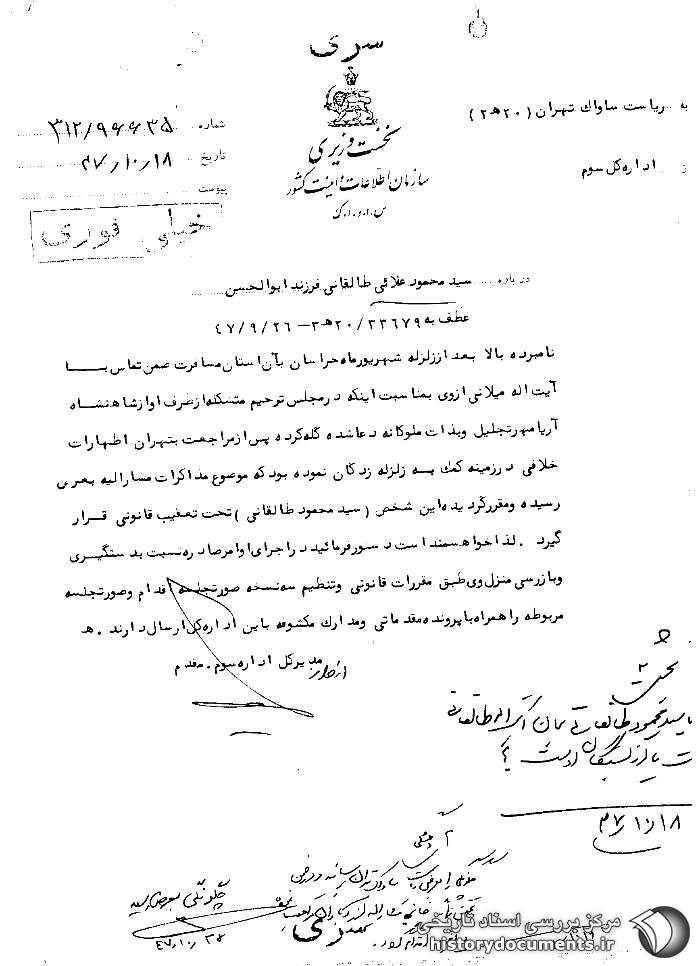 سری
نخست وزیری
سازمان اطلاعات و امنیت کشور
س.ا.و.ا.ک
به ریاست ساواك تهران (۲۰ هـ ۲)
اداره کل سوم
شماره ۳۱۲/۹۶۶۳۵
تاریخ ۴۷/۱۰/۱۸
پیوست
خیلی فوری
درباره سید محمود علائی طالقانی فرزند ابوالحسن
عطف به ۲۰/۳۳۶۷۹ هـ ۲ – ۴۷/۹/۲۶
نامبرده بالا بعد از زلزله شهریورماه خراسان بآن استان مسافرت ضمن تماس بـا
آیت اله میلانی از وی بمناسبت اینکه درمجلس ترحیم متشکله از طرف او از شاهنشاه
آریامهر تجلیل و بذات ملوکانه دعا شده گله کرده پس از مراجعت بتهران اظهارات
خلافی در زمینه کمك به زلزله زدگان نموده بود که موضوع مذاکرات مشارالیه بعرض
رسیده و مقرر گردیده این شخص (سید محمود طالقانی) تحت تعقیب قانونی قـرار
گیرد . لذا خواهشمند است دستور فرمائید در اجرای اوامر صادره نسبت بدستگیری
و بازرسی منزل وی طبق مقررات قانونی و تنظیم سه نسخه صورتجلسه اقدام و صورتجلسه
مربوطه را همراه با پرونده مقدماتی و مدارك مکشوفه باین اداره کل ارسال دارند . هـ
مدیرکل اداره سوم . مقدم
سید محمود طالقانی همان آیت اله طالقانی
یا از بستگان اوست ؟
۴۷/۱۰/۱۸
سری
مرکز بررسی اسناد تاریخی
historydocuments.ir